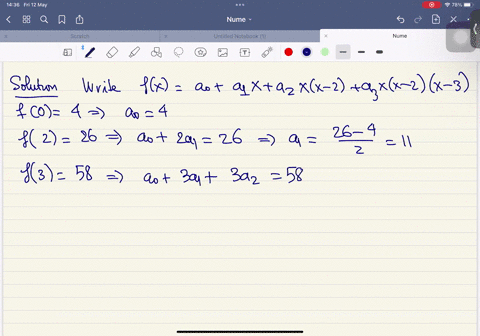 14:36 Fri 12 May
78%
Nume
Scratch
Untitled Notebook (1)
Nume
Solution Write f(x) = a₀ + a₁x + a₂x(x-2) + a₃x(x-2)(x-3)
f(0) = 4 ⇒ a₀ = 4
f(2) = 26 ⇒ a₀ + 2a₁ = 26 ⇒ a₁ = (26-4)/2 = 11
f(3) = 58 ⇒ a₀ + 3a₁ + 3a₂ = 58